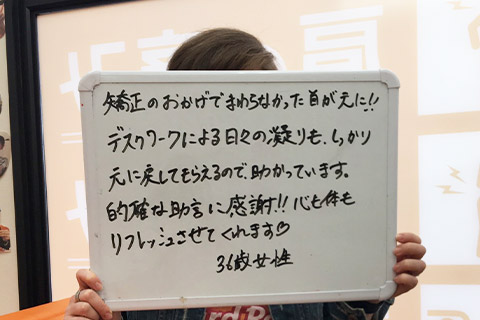 矯正のおかげでまわらなかった首が元に!!
デスクワークによる日々の凝りも、しっかり
元に戻してもらえるので、助かっています。
的確な助言に感謝!! 心も体も
リフレッシュさせてくれます♡
36歳女性